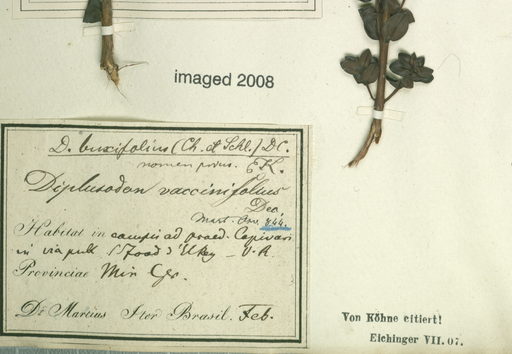 imaged 2008
D. buxifolius (Ch. et Schl.) DC.
nomen prius. EK.
Diplusodon vaccinifolius
Dec.
Mart. 844.
Habitat in campis ad praed. Capivari
in via publ.
Provinciae Min Ger.
Dr Martius Iter Brasil. Feb.
Von Köhne citiert!
Eichinger VII. 07.